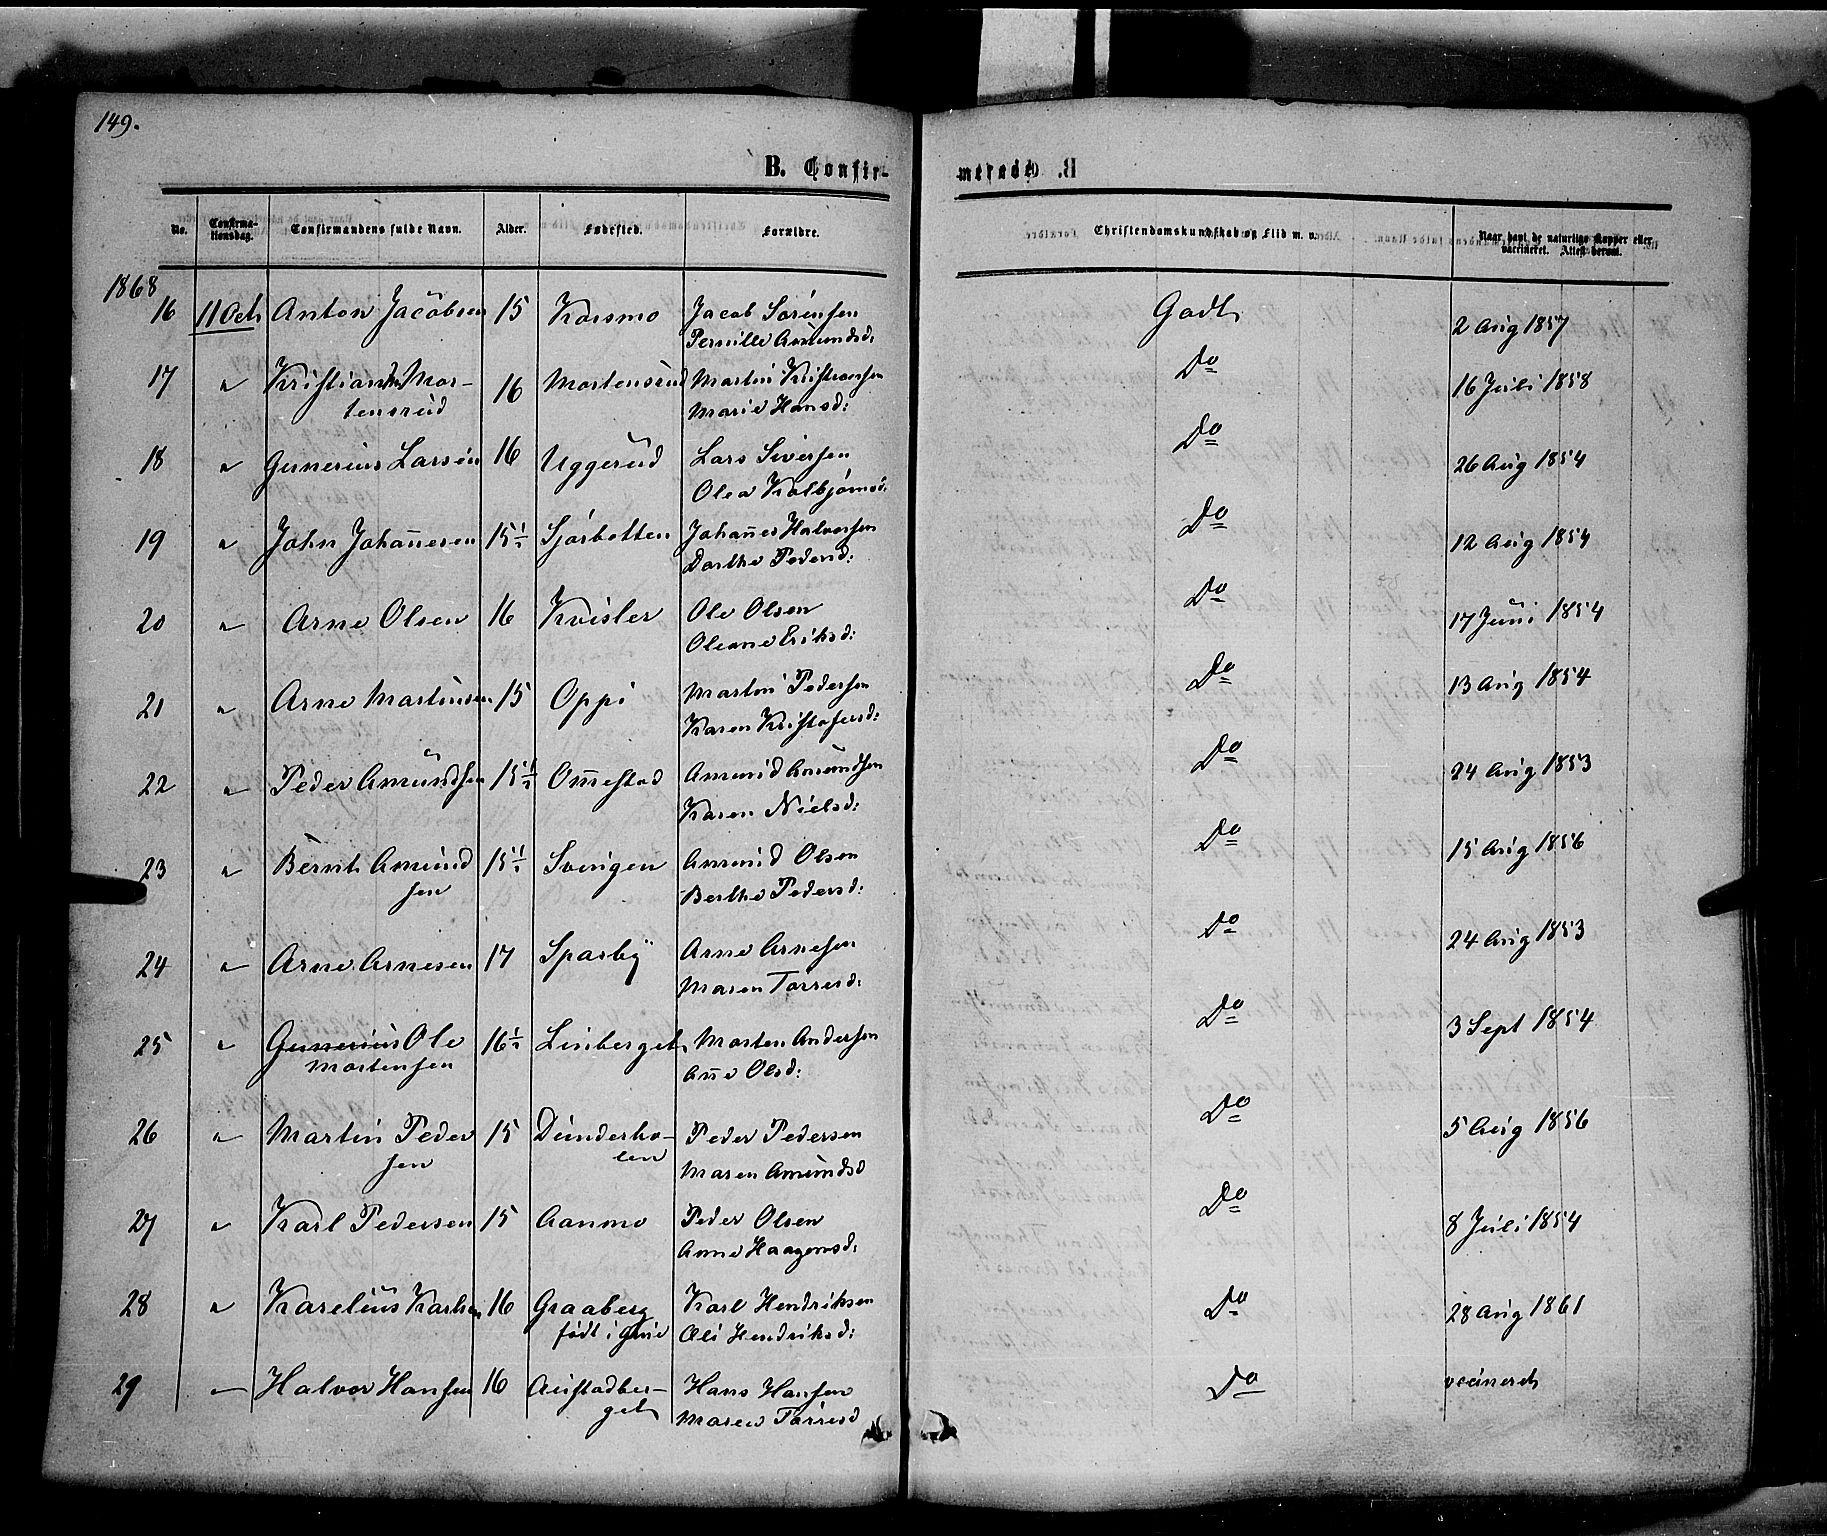 149.
B. Confir-
merede. B.
No.
Confirma-
tionsdag.
Confirmandens fulde Navn.
Alder.
Fødested.
Forældre.
Christendomskundskab og Flid m. v.
Naar havt de naturlige Kopper eller
vaccineret. Attest derom.
1868
16 11 Oct Anton Jacobsen 15 Kaismo Jacob Sørensen Godt 2 Aug 1857
Pernille Amundsd:
17 " Kristian Mor- 16 Mortensrud Martin Kristiansen Do 16 Juli 1858
tensrud Marie Hansd:
18 " Gunerius Larsen 16 Uggerud Lars Siversen Do 26 Aug 1854
Olea Kolbjørnsd:
19 " John Johannesen 15 1/2 Sjørbotten Johannes Halvorsen Do 12 Aug 1854
Dorthe Pedersd:
20 " Arne Olsen 16 Kvisler Ole Olsen Do 17 Juni 1854
Oleane Eriksd:
21 " Arne Martinsen 15 Oppi Martin Pedersen Do 13 Aug 1854
Karen Kristofersd:
22 " Peder Amundsen 15 1/2 Ommestad Amund Amundsen Do 24 Aug 1853
Karen Nielsd:
23 " Bernt Amund 15 1/2 Svingen Amund Olsen Do 15 Aug 1856
sen Berthe Pedersd:
24 " Arne Arnesen 17 Sparby Arne Arnesen Do 24 Aug 1853
Maren Torresd:
25 " Gunerius Ole 16 1/2 Linberget Morten Andersen Do 3 Sept 1854
Mortensen Anne Olsd:
26 " Martin Peder 15 Dunderho- Peder Pedersen Do 5 Aug 1856
sen len Maren Amundsd
27 " Karl Pedersen 15 Aanmo Peder Olsen Do 8 Juli 1854
Anne Haagensd:
28 " Karelius Karlsen 16 Graaberg Karl Hendriksen Do 28 Aug 1861
født i Grue Oli Hendriksd:
29 — Halvor Hansen 16 Austadber- Hans Hansen Do vccineret
get Maren Torresd